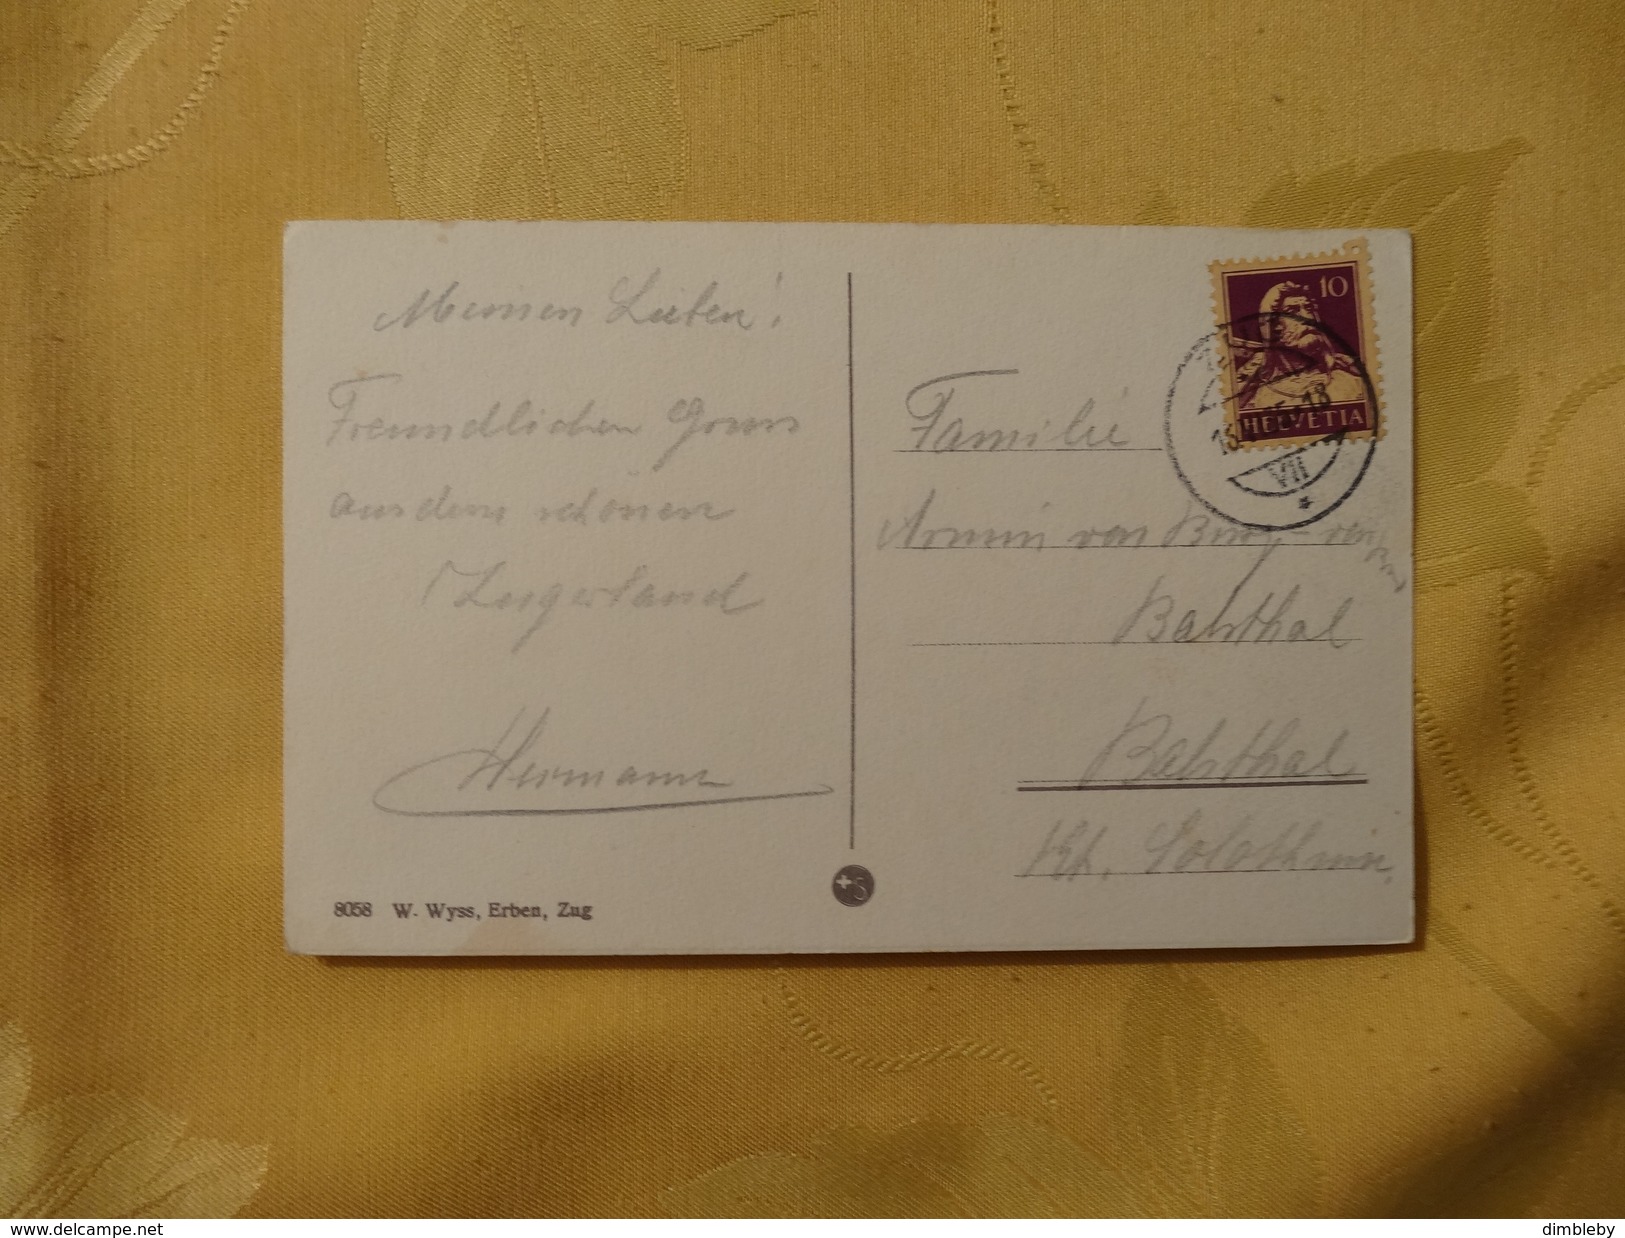 Meinen Lieben!
Freundlichen Gruss
aus dem schönen
Zugerland
Hermann
8058 W. Wyss, Erben, Zug
S
10
HELVETIA
VII
Familie
Armin von Burg
Balsthal
Balsthal
Kt. Solothurn.
delcampe.net
dimbleby